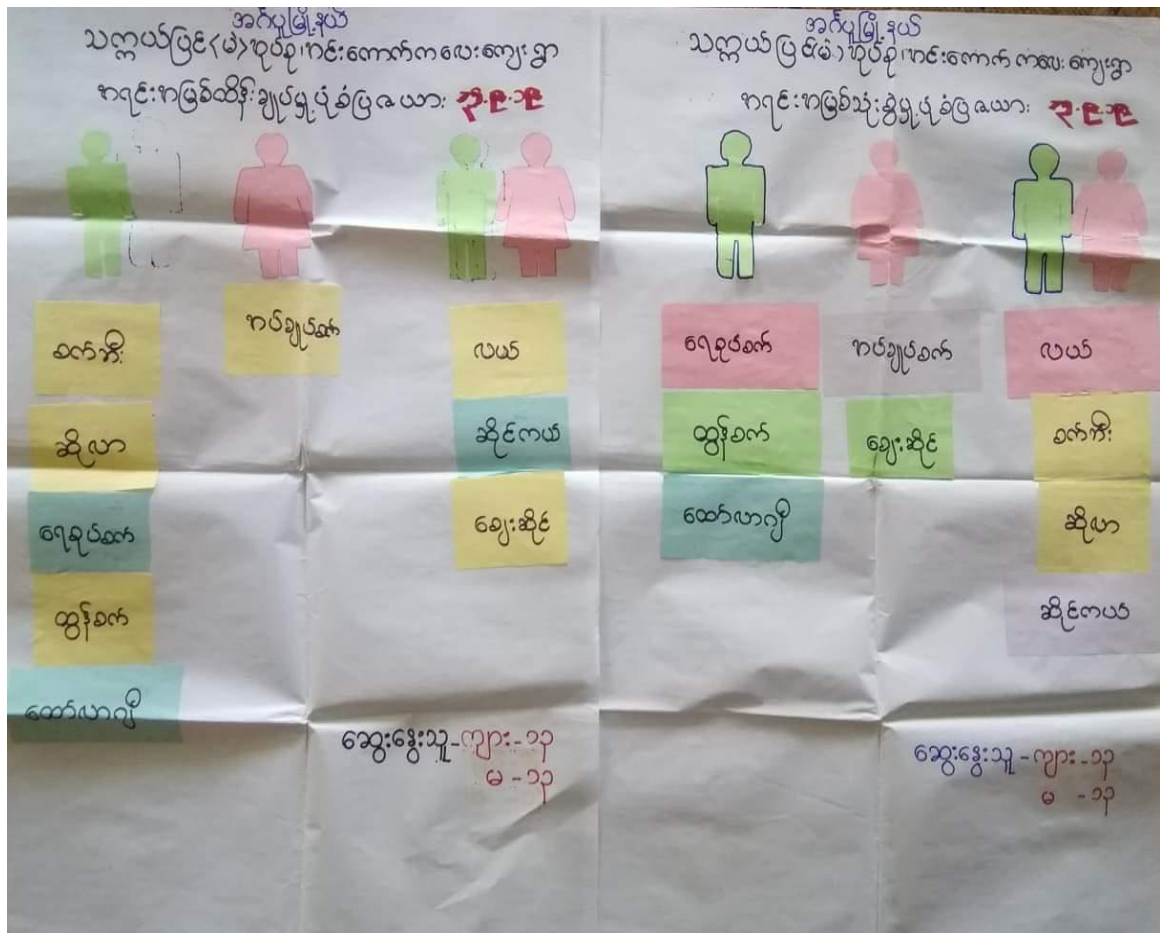 အင်္ဂပူမြို့နယ်
သက္ကယ်ပြင်(မ)အုပ်စု၊ ကင်းကောက်ကလေးကျေးရွာ
အရင်းအမြစ်ထိန်းချုပ်မှုပုံစံပြဇယား ၃.၉.၁၉
စက်ဘီး
ဆိုလာ
ရေစုပ်စက်
ထွန်စက်
ထော်လာဂျီ
အပ်ချုပ်စက်
လယ်
ဆိုင်ကယ်
ဈေးဆိုင်
ဆွေးနွေးသူ-ကျား-၁၃
မ - ၁၃
အင်္ဂပူမြို့နယ်
သက္ကယ်ပြင်(မ)အုပ်စု၊ ကင်းကောက်ကလေးကျေးရွာ
အရင်းအမြစ်သုံးစွဲမှုပုံစံပြဇယား ၃.၉.၁၉
ရေစုပ်စက်
ထွန်စက်
ထော်လာဂျီ
အပ်ချုပ်စက်
ဈေးဆိုင်
လယ်
စက်ဘီး
ဆိုလာ
ဆိုင်ကယ်
ဆွေးနွေးသူ-ကျား-၁၃
မ - ၁၃